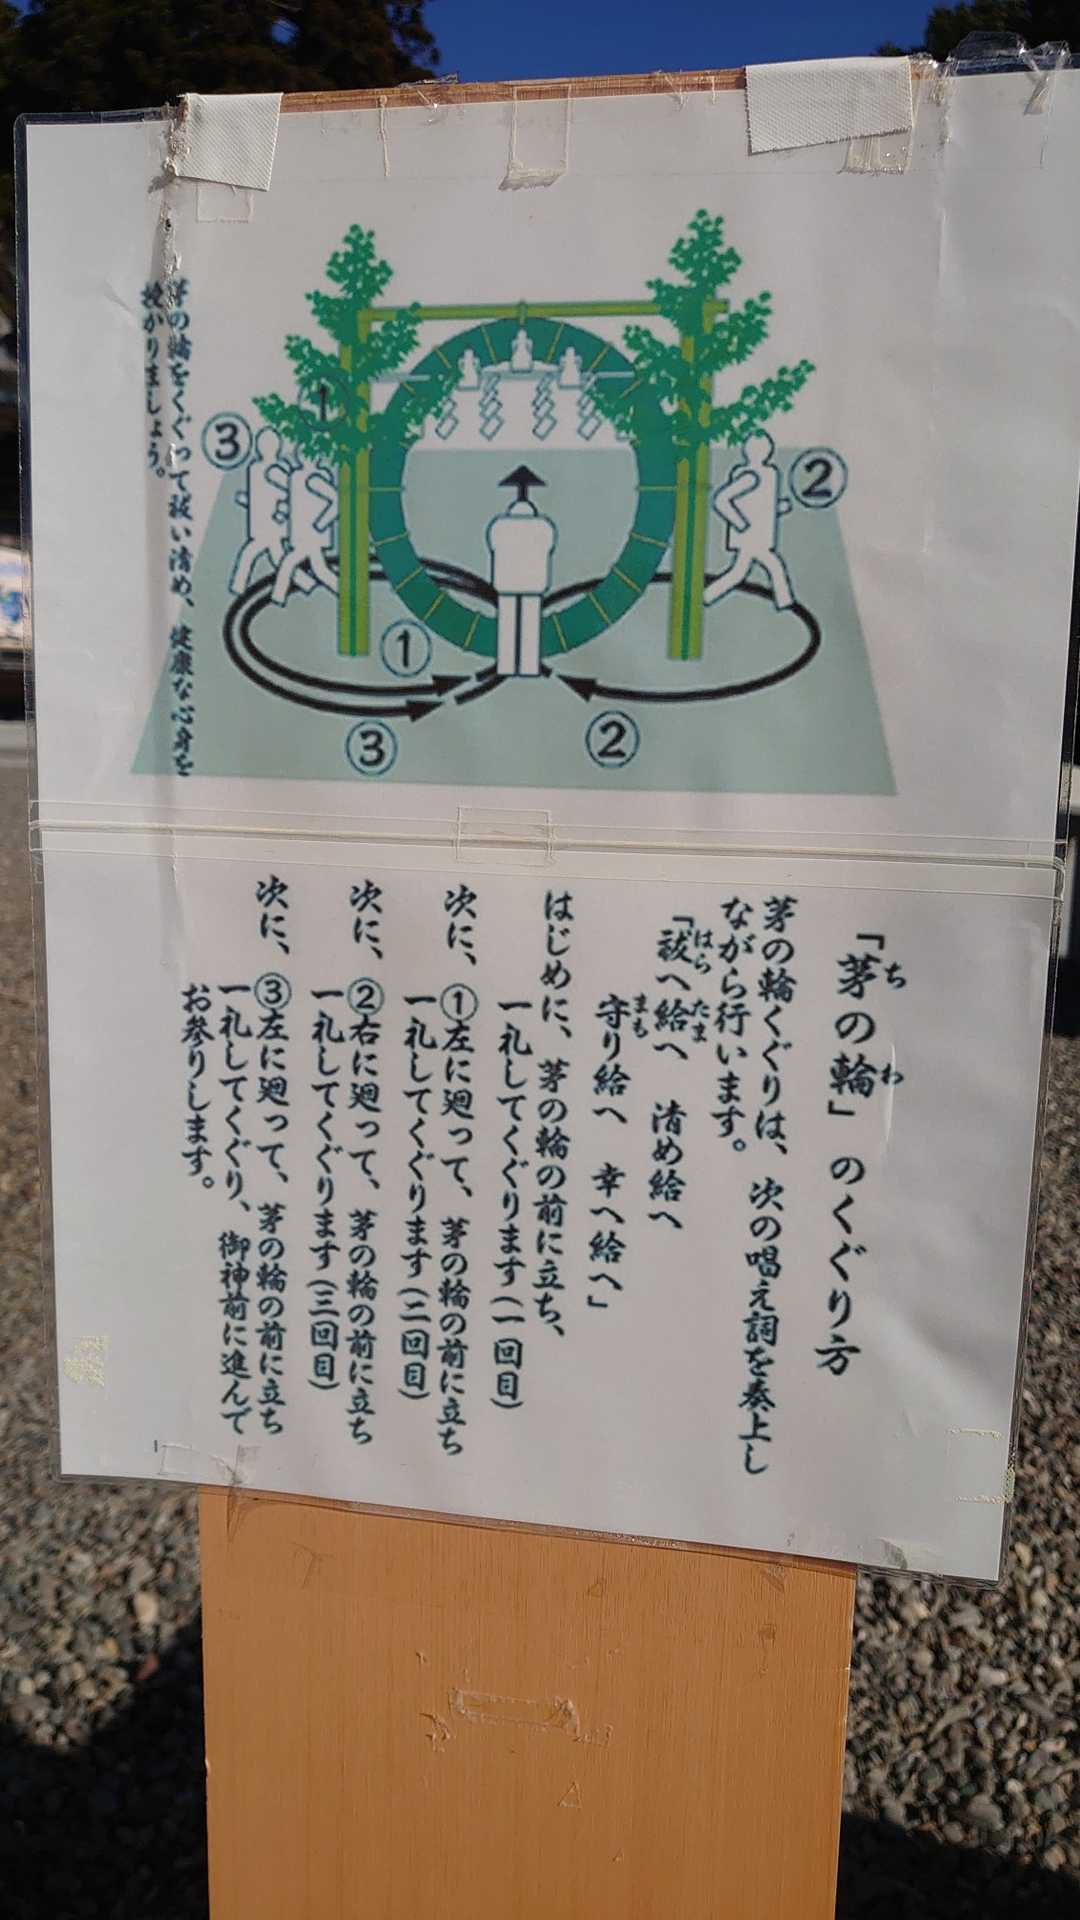 「茅の輪」のくぐり方
ちわ
茅の輪くぐりは、次の唱え詞を奏上し
ながら行います。
「祓へ給へ　清め給へ
はらたま
守り給へ　幸へ給へ」
まも
はじめに、茅の輪の前に立ち、
一礼してくぐります(一回目)
次に、①左に廻って、茅の輪の前に立ち
一礼してくぐります(二回目)
次に、②右に廻って、茅の輪の前に立ち
一礼してくぐります(三回目)
次に、③左に廻って、茅の輪の前に立ち
一礼してくぐり、御神前に進んで
お参りします。
茅の輪をくぐって祓い清め、健康な心身を
授かりましょう。
①
③
②
①
③
②